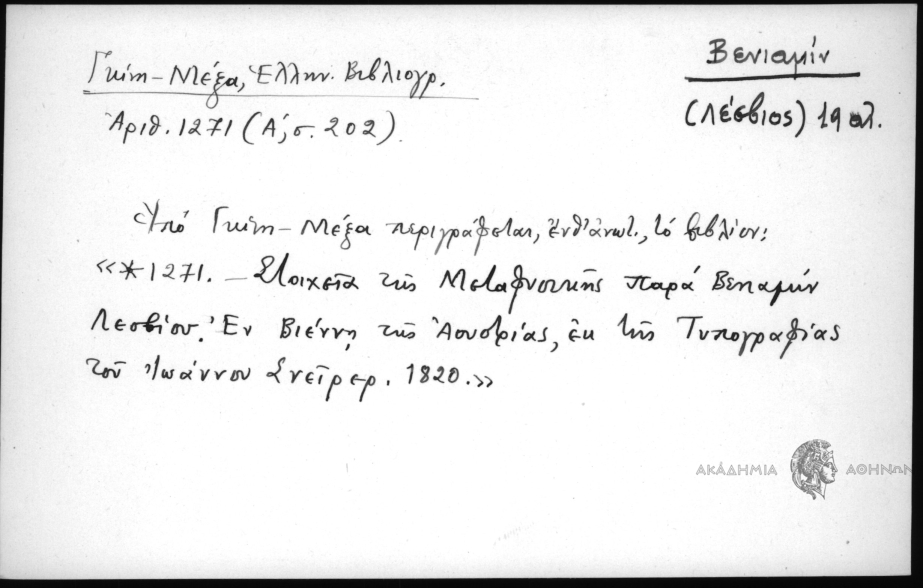 Βενιαμίν
(Λέσβιος) 19 αἰ.
Γκίνη – Μέξα, Ἑλλην. Βιβλιογρ.
Ἀριθ. 1271 (Α΄, σ. 202).
Ὑπό Γκίνη – Μέξα περιγράφεται, ἔνθ' ἀνωτ., τό βιβλίον:
«*1271. – Στοιχεῖα τῆς Μεταφυσικῆς παρά Βενιαμίν
Λεσβίου. Ἐν Βιέννῃ τῆς Ἀουστρίας, ἐκ τῆς Τυπογραφίας
τοῦ Ἰωάννου Σνεῖρερ. 1820.»
ΑΚΑΔΗΜΙΑ ΑΘΗΝΩΝ